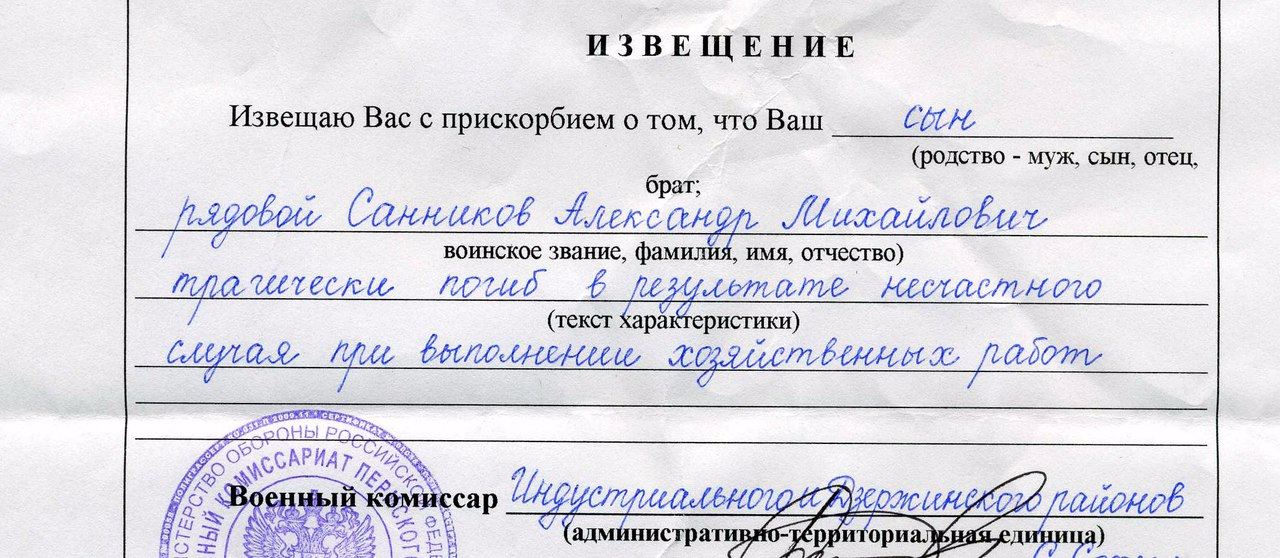 ИЗВЕЩЕНИЕ
Извещаю Вас с прискорбием о том, что Ваш сын
(родство - муж, сын, отец,
брат;
рядовой Санников Александр Михайлович
воинское звание, фамилия, имя, отчество)
трагически погиб в результате несчастного
(текст характеристики)
случая при выполнении хозяйственных работ
ОБОРОНЫ РОССИЙСКОЙ
КОМИССАРИАТ ПЕРМСКОГО
Военный комиссар Индустриального и Дзержинского районов
(административно-территориальная единица)